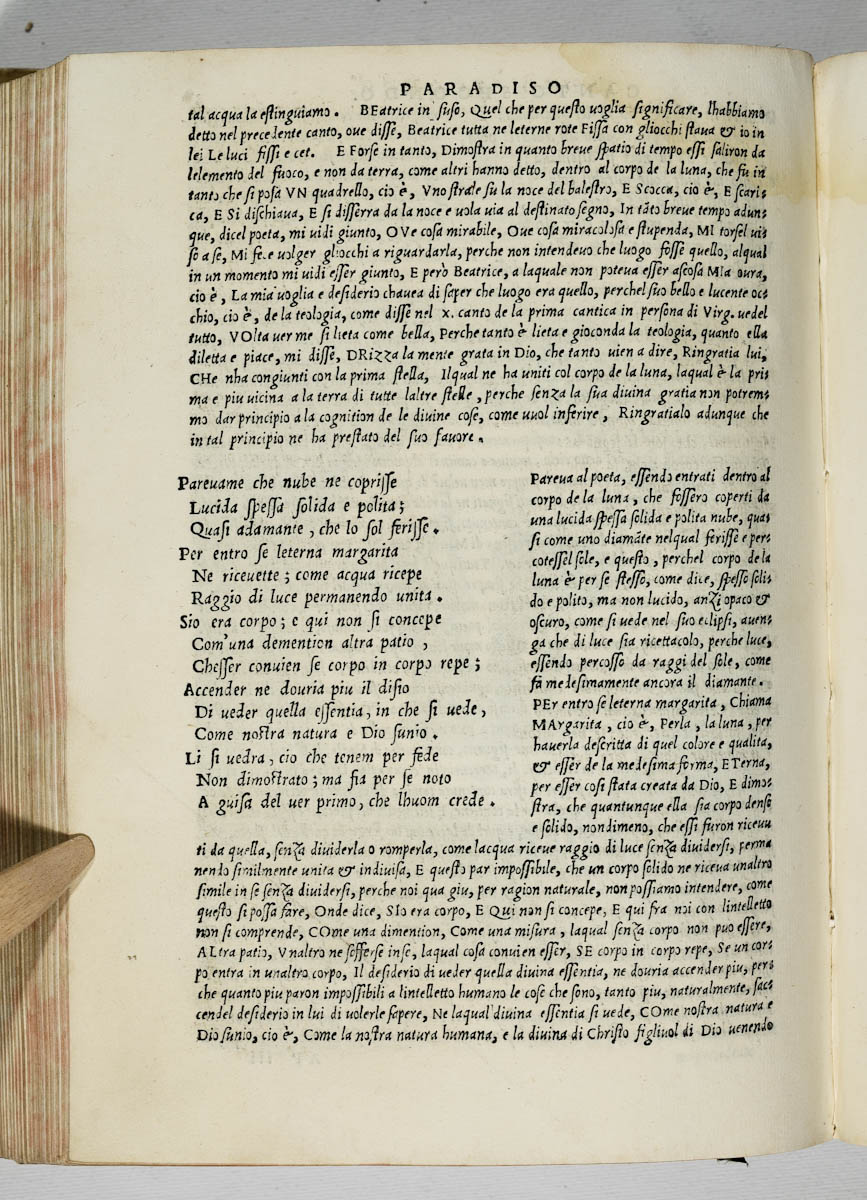 PARADISO
tal acqua la estinguiamo. BEatrice in suso, Quel che per questo uoglia significare, lhabbiamo
detto nel precedente canto, oue disse, Beatrice tutta ne leterne rote Fissa con gliocchi staua & io in
lei Le luci fissi e cet. E Forse in tanto, Dimostra in quanto breue spatio di tempo essi saliron da
lelemento del fuoco, e non da terra, come altri hanno detto, dentro al corpo de la luna, che fu in
tanto che si posa VN quadrello, cio è, Vno strale su la noce del balestro, E Scocca, cio è, E scari=
ca, E SI dischiaua, E si disserra da la noce e uola uia al destinato segno, In tãto breue tempo adun=
que, dicel poeta, mi uidi giunto, OVe cosa mirabile, Oue cosa miracolosa e stupenda, MI torsel uis
so a se, Mi fece uolger gliocchi a riguardarla, perche non intendeuo che luogo fosse quello, alqual
in un momento mi uidi esser giunto, E però Beatrice, a laquale non poteua esser ascosa MIa oura,
cio è, La mia uoglia e desiderio chauea di saper che luogo era quello, perchel suo bello e lucente oc=
chio, cio è, de la teologia, come disse nel x. canto de la prima cantica in persona di Virg. uedel
tutto, VOlta uer me si lieta come bella, Perche tanto è lieta e gioconda la teologia, quanto ella
diletta e piace, mi disse, DRizza la mente grata in Dio, che tanto uien a dire, Ringratia lui,
CHe nha congiunti con la prima stella, Ilqual ne ha uniti col corpo de la luna, laqual è la pri=
ma e piu uicina a la terra di tutte laltre stelle, perche senza la sua diuina gratia non potrem=
mo dar principio a la cognition de le diuine cose, come uuol inferire, Ringratialo adunque che
in tal principio ne ha prestato del suo fauore.
Pareuame che nube ne coprisse
Lucida spessa solida e polita;
Quasi adamante, che lo sol ferisse.
Per entro se leterna margarita
Ne riceuette; come acqua ricepe
Raggio di luce permanendo unita.
Sio era corpo; e qui non si concepe
Com'una demention altra patio,
Chesser conuien se corpo in corpo repe;
Accender ne douria piu il disio
Di ueder quella essentia, in che si uede,
Come nostra natura e Dio sunio.
Li si uedra, cio che tenem per fede
Non dimostrato; ma fia per se noto
A guisa del uer primo, che lhuom crede.
Pareua al poeta, essendo entrati dentro al
corpo de la luna, che fossero coperti da
una lucida spessa solida e polita nube, qua=
si come uno diamãte nelqual ferisse e per=
cotessel sole, e questo, perchel corpo de la
luna è per se stesso, come dice, spesso soli=
do e polito, ma non lucido, anzi opaco &
oscuro, come si uede nel suo eclipsi, auen=
ga che di luce sia ricettacolo, perche luce,
essendo percosso da raggi del sole, come
fa medesimamente ancora il diamante.
PEr entro se leterna margarita, Chiama
MArgarita, cio è, Perla, la luna, per
hauerla descritta di quel colore e qualita,
& esser de la medesima forma, ETerna,
per esser cosi stata creata da Dio, E dimo=
stra, che quantunque ella sia corpo denso
e solido, nondimeno, che essi furon riceuu
ti da quella, senza diuiderla o romperla, come lacqua riceue raggio di luce senza diuidersi, perma
nendo similmente unita & indiuisa, E questo par impossibile, che un corpo solido ne riceua unaltro
simile in se senza diuidersi, perche noi qua giu, per ragion naturale, non possiamo intendere, come
questo si possa fare, Onde dice, SIo era corpo, E QUi non si concepe, E qui fra noi con lintelletto
non si comprende, COme una dimention, Come una misura, laqual senza corpo non puo essere,
ALtra patio, Vnaltro ne sofferse inse, laqual cosa conuien esser, SE corpo in corpo repe, Se un cor=
po entra in unaltro corpo, Il desiderio di ueder quella diuina essentia, ne douria accender piu, per=
che quanto piu paron impossibili a lintelletto humano le cose che sono, tanto piu, naturalmente, sac=
cendel desiderio in lui di uolerle sapere, Ne laqual diuina essentia si uede, COme nostra natura e
Dio sunio, cio è, Come la nostra natura humana, e la diuina di Christo figliuol di Dio uenendo